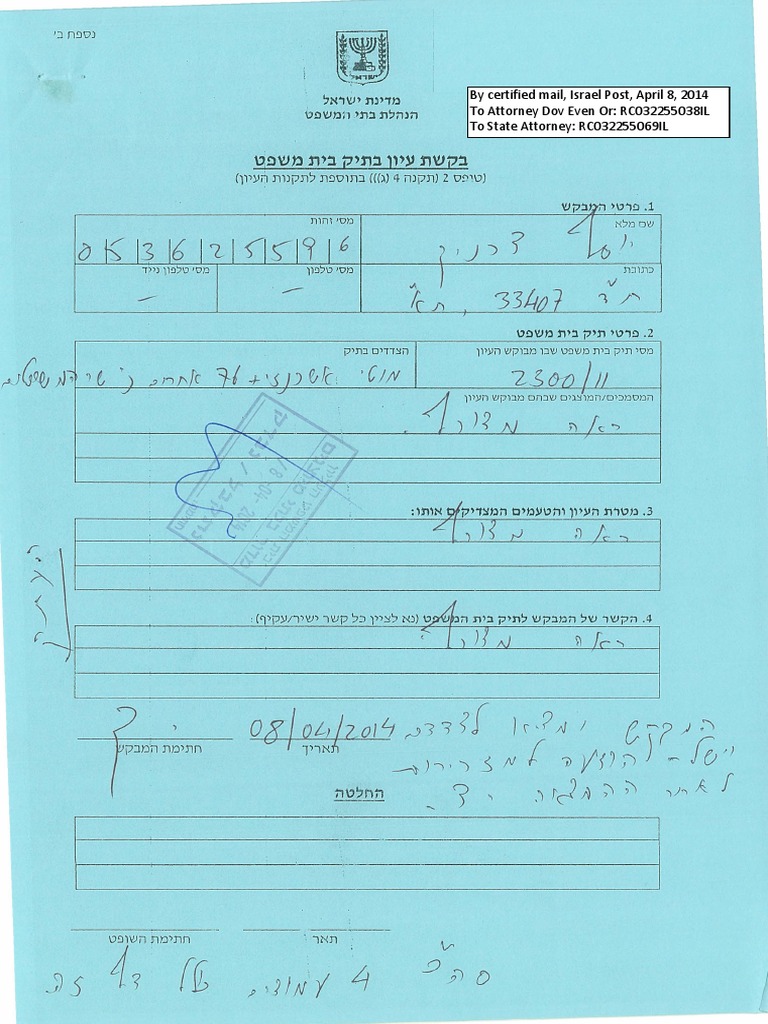 נספח ב'
מדינת ישראל
הנהלת בתי המשפט
By certified mail, Israel Post, April 8, 2014
To Attorney Dov Even Or: RC032255038IL
To State Attorney: RC032255069IL
בקשת עיון בתיק בית משפט
(טופס 2 (תקנה 4 (ג))) בתוספת לתקנות העיון)
1. פרטי המבקש
שם מלא
מס' זהות
יוסף צרניק
0 5 3 6 2 5 5 9 6
כתובת
מס' טלפון
מס' טלפון נייד
ת"ד 33407, ת"א
–
–
2. פרטי תיק בית משפט
מס' תיק בית משפט שבו מבוקש העיון
הצדדים בתיק
2300/11
מוטי אשכנזי + 76 אחרים נ' שר המשפטים
המסמכים/המוצגים שבהם מבוקש העיון
ראה מצורף.
3. מטרת העיון והטעמים המצדיקים אותו:
ראה מצורף
4. הקשר של המבקש לתיק בית המשפט (נא לציין כל קשר ישיר/עקיף):
ראה מצורף
08/04/2014
תאריך
חתימת המבקש
המבקש ימציא לצדדים
וישלח הודעה למזכירות
לאחר ההמצאה
החלטה
תאר
חתימת השופט
סה"כ 4 עמודים כולל דף זה